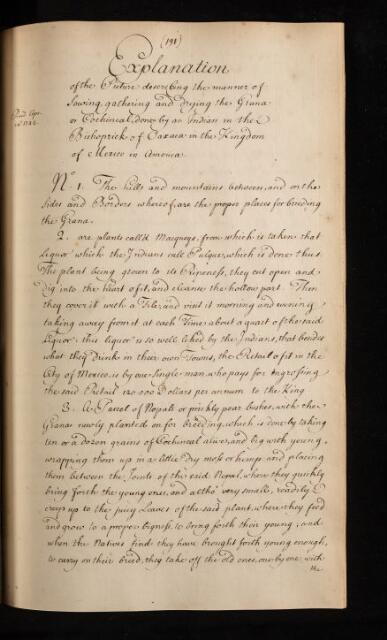 (191)
Explanation
of the Picture describing the manner of
Sowing, gathering and drying the Grana
or Cochineal, done by an Indian in the
Bishoprick of Oaxaca in the Kingdom
of Mexico in America
No. 1. The hills and mountains between, and on the
sides and Borders whereof, are the proper places for breeding
the Grana.
2. are plants call'd Maqueys, from which is taken that
Liquor which the Indians call Pulque, which is done thus
The plant being grown to its Ripeness, they cut open and
dig into the heart of it, and cleanse the hollow part. Then
they cover it with a Tile, and visit it morning and evening
taking away from it at each Time about a quart of the said
Liquor. this liquor is so well liked by the Indians, that besides
what they Drink in their own Towns, the Retail of it in the
City of Mexico is by one Single man, who pays for engrossing
the said Retail 120,000 Dollars per annum to the King
3. A Parcel of Nopals or prickly pear bushes, with the
Grana newly planted on for breeding, which is done by taking
ten or a dozen grains of Cochineal alive, and big with young,
wrapping them up in a little Dry moss or hemp and placing
them between the Joints of the said Nopal, where they quickly
bring forth the young ones, and altho' very small, readily
creep up to the juicy Leaves of the said plant, where they feed
and grow to a proper bigness, to bring forth their young, and
when the Natives find they have brought forth young enough,
to carry on their breed, they take off the old ones, one by one with
the